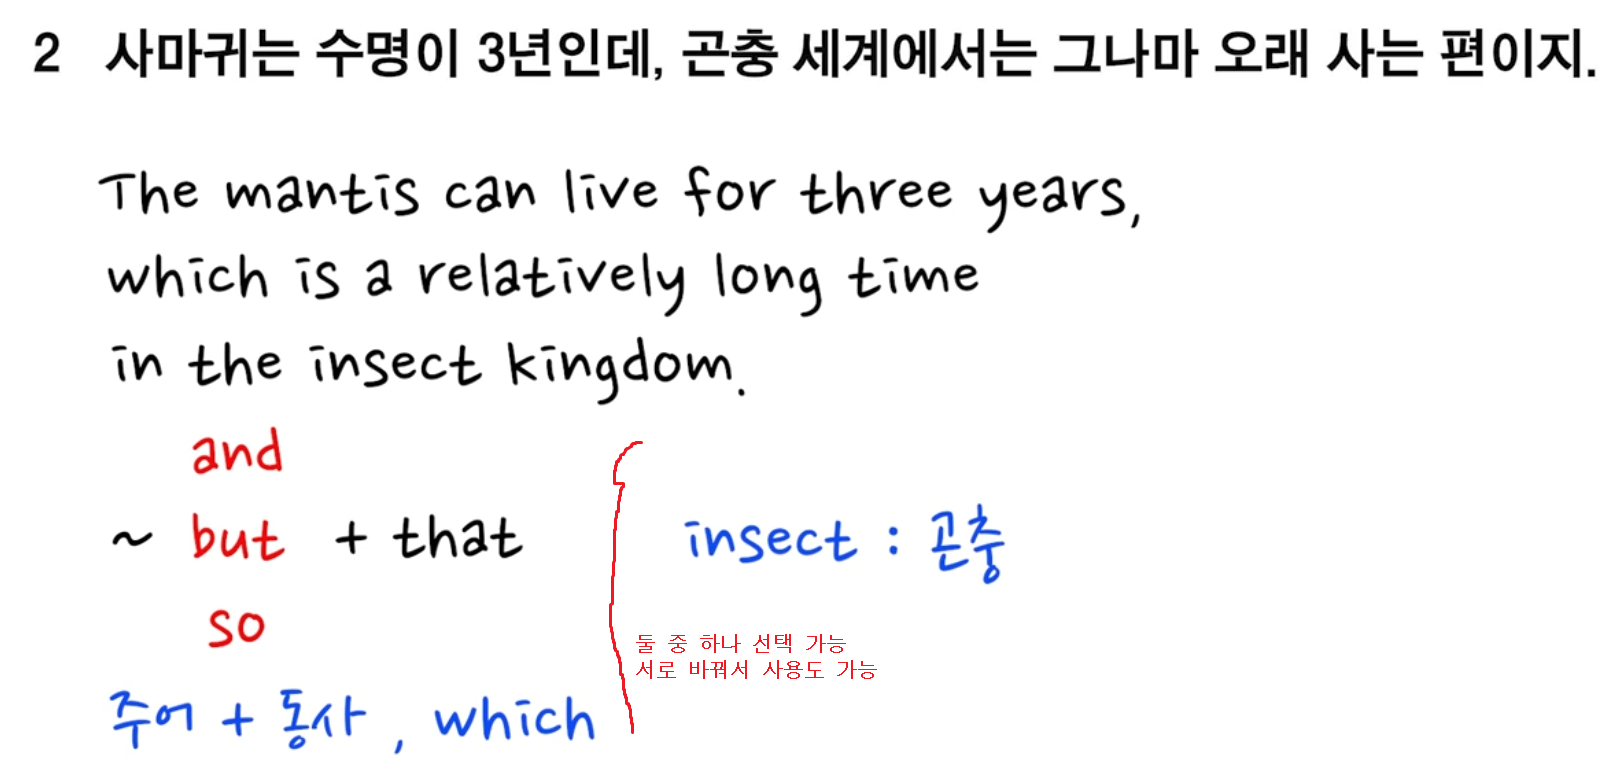 2 사마귀는 수명이 3년인데, 곤충 세계에서는 그나마 오래 사는 편이지.
The mantis can live for three years,
which is a relatively long time
in the insect kingdom.
and
~ but + that
so
insect : 곤충
둘 중 하나 선택 가능
서로 바꿔서 사용도 가능
주어 + 동사, which